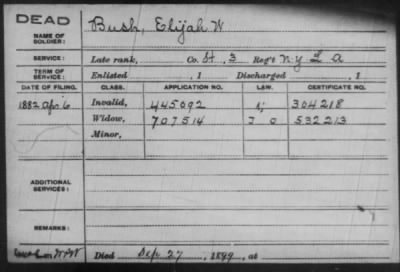 DEAD
NAME OF SOLDIER: Bush, Elijah W
SERVICE: Late rank, Co. Bt. 3 Reg't N.Y. L A
TERM OF SERVICE: Enlisted , 1 Discharged , 1
DATE OF FILING. CLASS. APPLICATION NO. LAW. CERTIFICATE NO.
1882 Apr 6 Invalid, 445092 304218
Widow, 707514 532213
Minor,
ADDITIONAL SERVICES:
REMARKS:
Died Sep 27, 1899, at